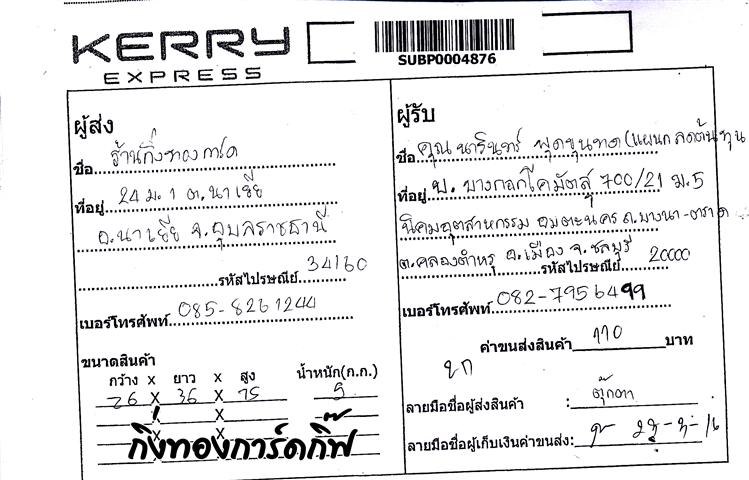 KERRY
EXPRESS
SUBP0004876
ผู้ส่ง
ชื่อ ร้านกิ่งทองการ์ด
ที่อยู่ 24 ม.1 ต.นาเยีย
อ.นาเยีย จ.อุบลราชธานี
รหัสไปรษณีย์ 34160
เบอร์โทรศัพท์ 085-8261244
ขนาดสินค้า
กว้าง x ยาว x สูง น้ำหนัก(ก.ก.)
26 x 36 x 15 5
x x
x x
กิ่งทองการ์ดกิ๊ฟ
ผู้รับ
ชื่อ คุณ นารินทร์ (แผนก ลดต้นทุน
ที่อยู่ บ. บางกอกโคมัตสุ 700/21 ม.5
นิคมอุตสาหกรรม อมตะนคร ถ.บางนา-ตราด
ต.คลองตำหรุ อ.เมือง จ.ชลบุรี
รหัสไปรษณีย์ 20000
เบอร์โทรศัพท์ 082-7956499
ค่าขนส่งสินค้า 110 บาท
ลายมือชื่อผู้ส่งสินค้า : ตุ๊กตา
ลายมือชื่อผู้เก็บเงินค่าขนส่ง: